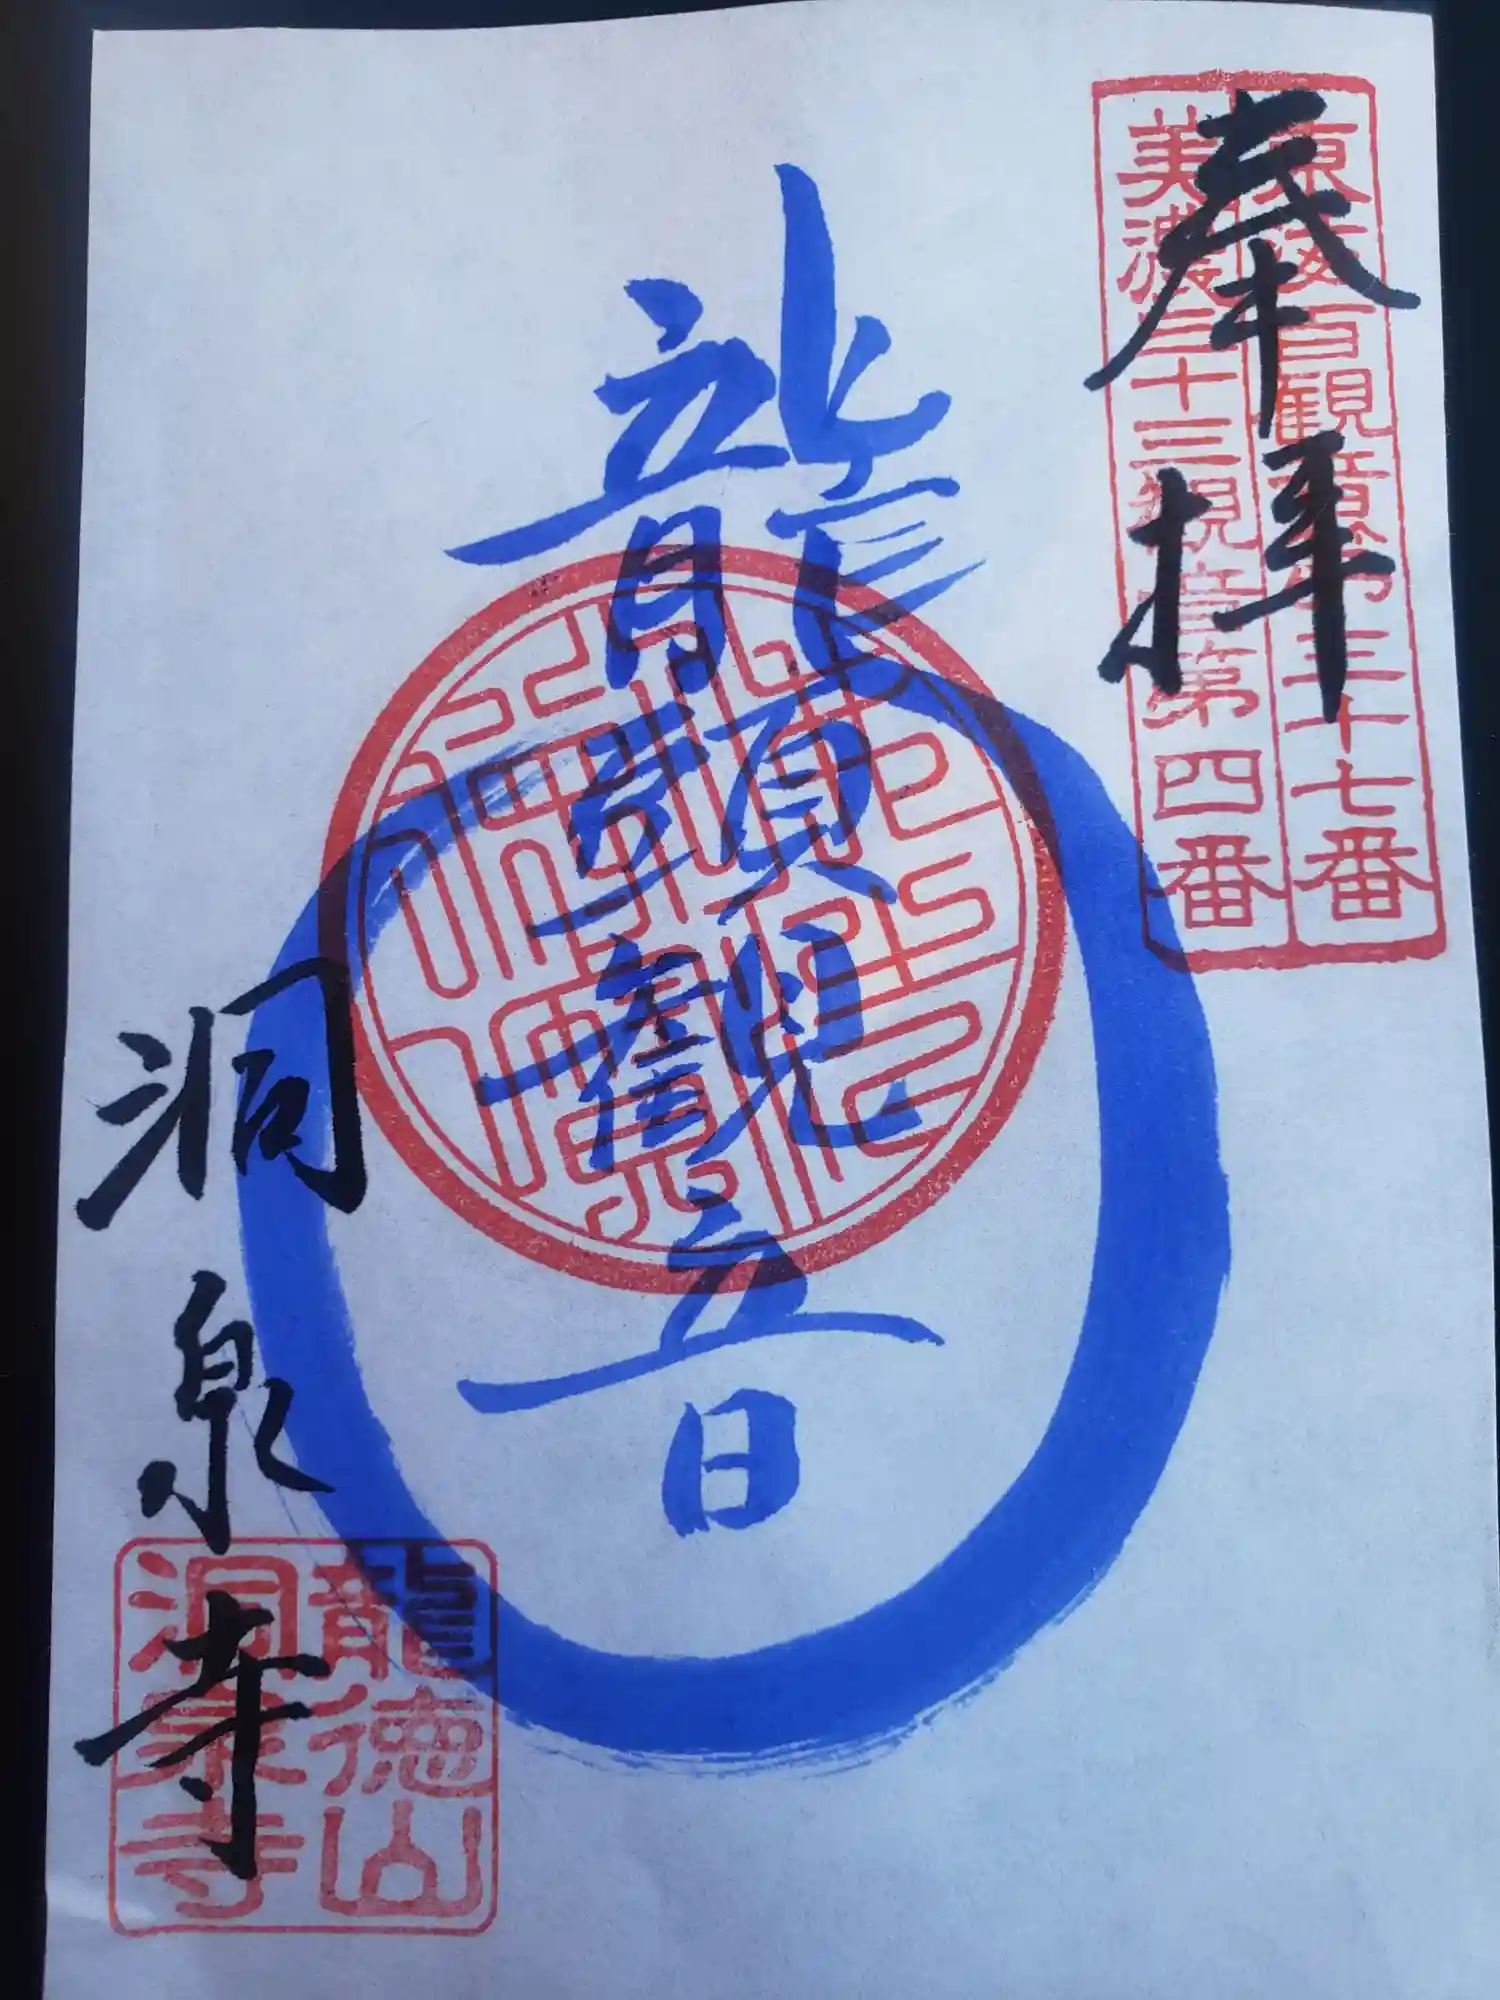 奉拝
東海百観音第三十七番
美濃三十三観音第四番
龍頭觀音
洞泉寺
龍徳山
洞泉寺